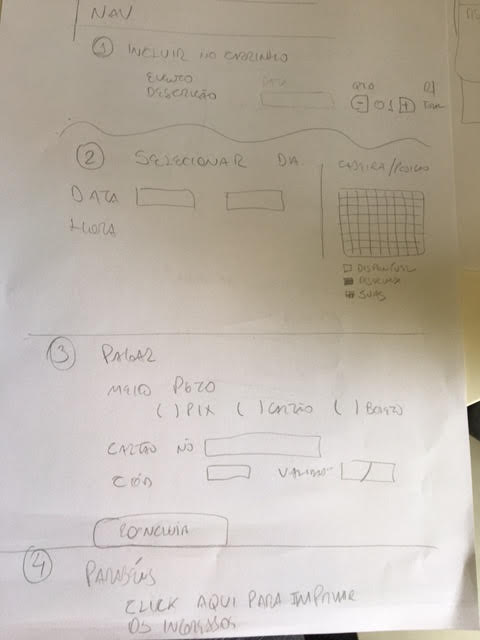 NAV
1 INCLUIR NO CARRINHO
EVENTO DATA QTD R$
DESCRIÇÃO - 01 +
2 SELECIONAR DIA CADEIRA/POSIÇÃO
DATA
HORA
DISPONÍVEL
RESERVADA
SUAS
3 PAGAR
MEIO PGTO
( ) PIX ( ) CARTÃO ( ) BOLETO
CARTÃO NO
CÓD VALIDADE /
CONCLUIR
4 PARABÉNS
CLICK AQUI PARA IMPRIMIR
OS INGRESSOS